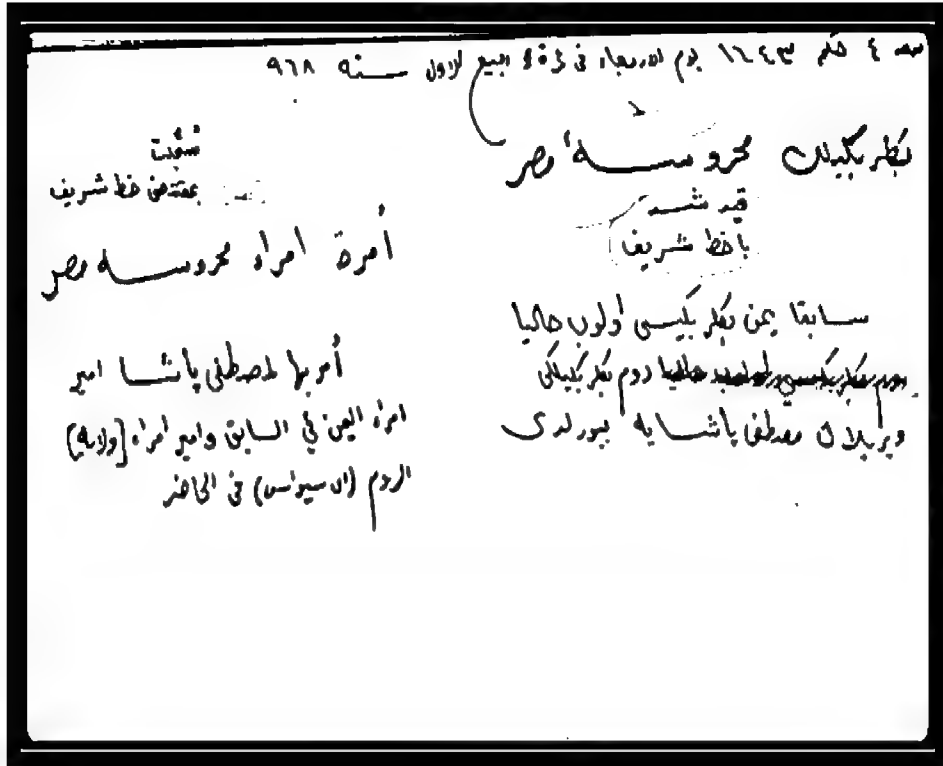 ٤ حكم ١٦٤٣ يوم الاربعاء في ربيع الاول سنه ٩٦٨
بكلربكيلك محروسهٔ مصر
قيد شد
باخط شريف
سابقا يمن بكلربكيسى اولوب حاليا
روم بكلربكيلكى
ويريلان مصطفى پاشايه بيورلدى
سُجّلت
بمقتضى خط شريف
أمرة امراء محروسه مصر
أمر بها لمصطفى پاشا امير
امراء اليمن في السابق وامير امراء [ولاية]
الروم (اى سيواس) في الحاضر